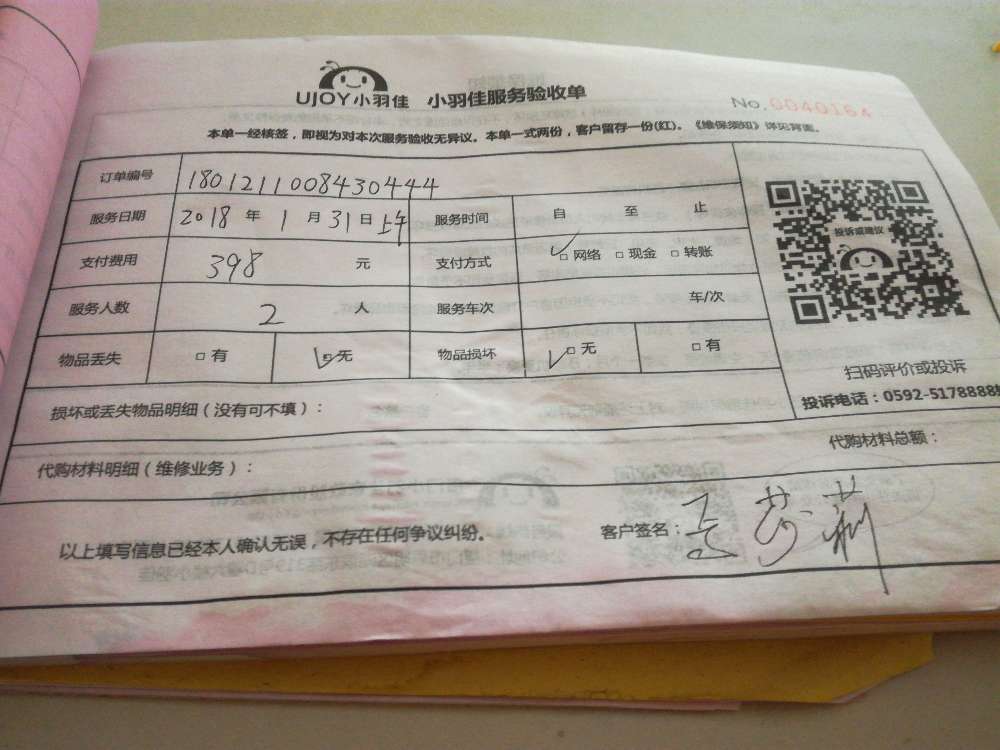 UJOY小羽佳 小羽佳服务验收单
No.0040164
本单一经核签，即视为对本次服务验收无异议。本单一式两份，客户留存一份(红)。《维保须知》详见背面。
订单编号 1801211008430444
服务日期 2018 年 1 月 31 日 上午 服务时间 自 至 止
支付费用 398 元 支付方式 □网络 □现金 □转账
服务人数 2 人 服务车次 车/次
物品丢失 □有 □无 物品损坏 □无 □有
投诉或建议
扫码评价或投诉
投诉电话：0592-5178888
损坏或丢失物品明细（没有可不填）：
代购材料明细（维修业务）： 代购材料总额：
以上填写信息已经本人确认无误，不存在任何争议纠纷。 客户签名：